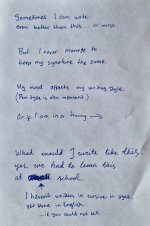 Sometimes I can write
even better than this.. or worse.
But I never manage to
keep my signature the same.
My mood affects my writing style.
(Pen type is also important.)
Or if I am in a hurry →
What would I write like this,
yes, we had to learn this
at school.
I haven't written in cursive in ages,
let alone in English.
- if you could not tell